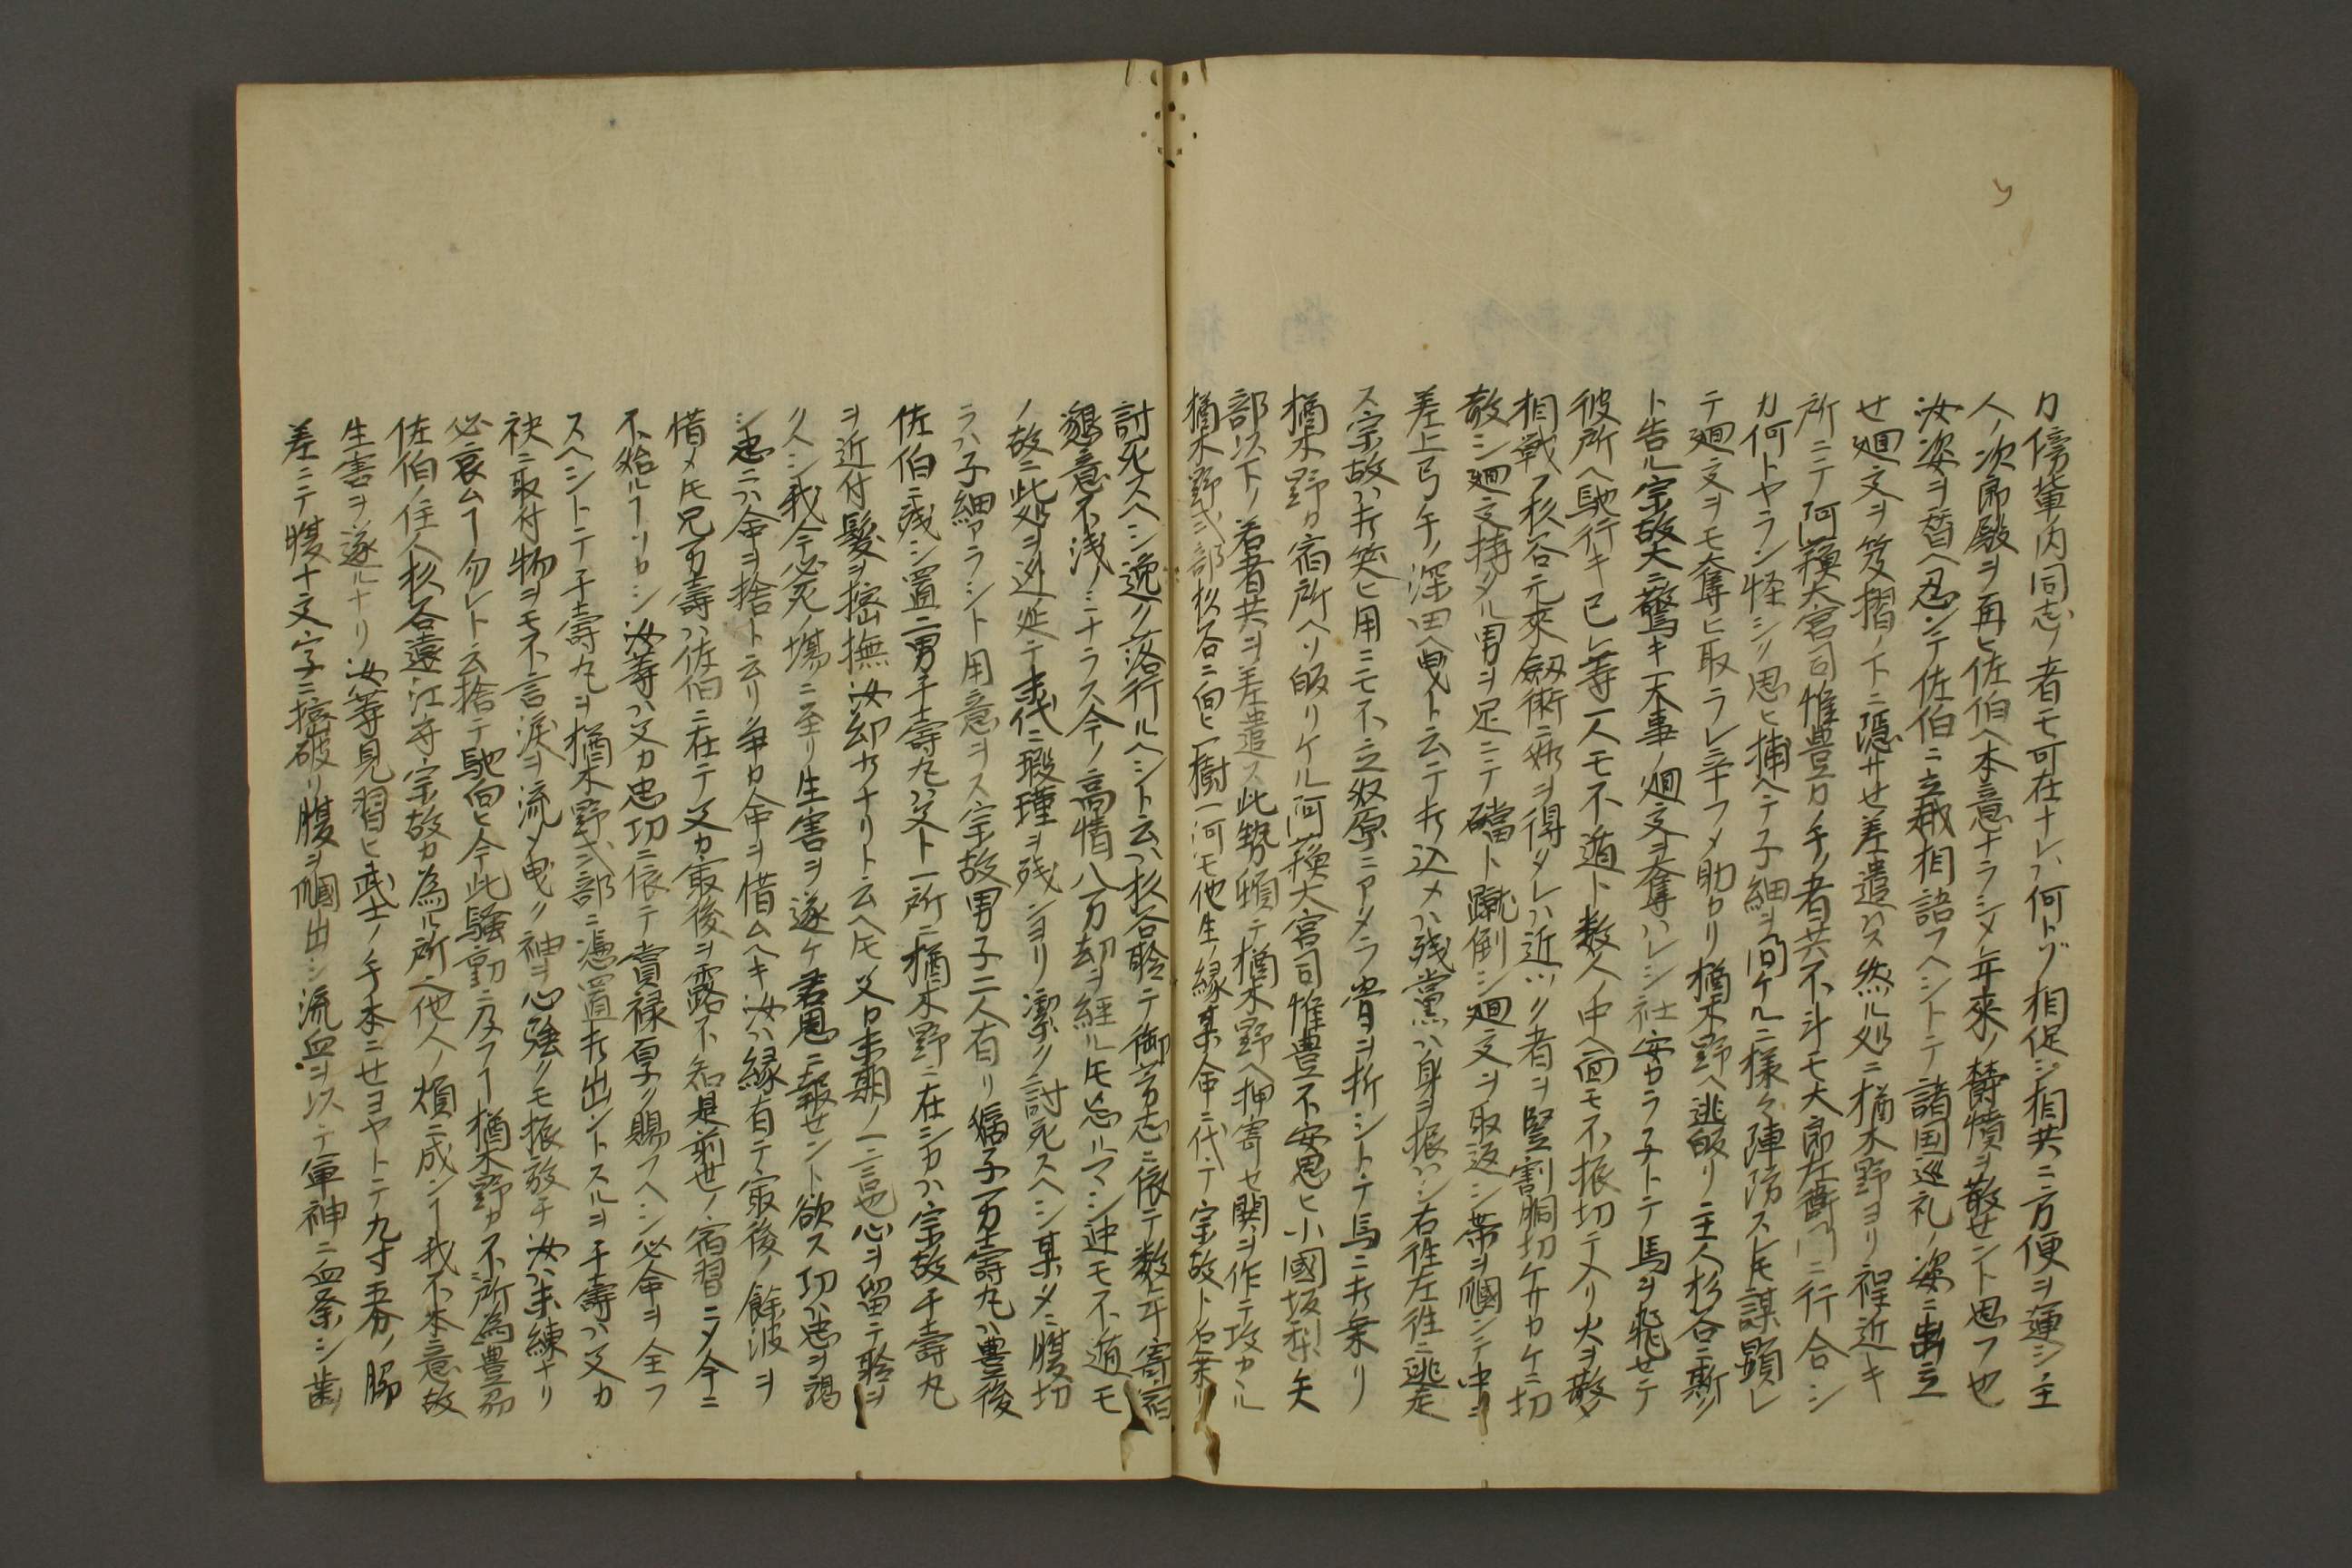 カ傍輩内同志ノ者モ可在ナレハ何トゾ相促シ相共ニ方便ヲ運シ主
人ノ次郎殿ヲ再ヒ佐伯ヘ本意ナラシメ年來ノ欝憤ヲ散セント思フ也
汝姿ヲ替ヘ忍ンテ佐伯ニ立越相語フヘシトテ諸国巡礼ノ姿ニ出立
セ廻文ヲ笈摺ノ下ニ隠サセ差遣ハス然ル処ニ楢木野ヨリ程近キ
所ニテ阿蘓大宮司惟豊カ手ノ者共不斗モ大郎左衛門ニ行合シ
カ何トヤラン怪シク思ヒ捕ヘテ子細ヲ問ケルニ様々陣防スレ𪜈謀顕レ
テ廻文ヲモ奪ヒ取ラレ辛フメ助カリ楢木野ヘ逃皈リ主人杉谷ニ斯ク
ト告ル宗故大ニ驚キ一大事ノ廻文ヲ奪ハレシ社安カラ子トテ馬ヲ飛セテ
彼所ヘ馳行キ已レ等一人モ不遁ト数人ノ中ヘ面モ不振切テ入リ火ヲ散メ
相戦フ杉谷元來釼術ニ妙ヲ得タレハ近ツク者ヲ竪割胴切ケサカケニ切
散シ廻文持タル男ヲ足ニテ礑ト蹴倒シ廻文ヲ取返シ帯ヲ爴ンテ中ニ
差上弓手ノ深田ヘ曳ト云テ打込メハ残党ハ身ヲ振ハシ右往左往ニ逃走
ス宗故ハ打笑ヒ用ニモ不立奴原ニアタラ骨ヲ折シトテ馬ニ打乗リ
楢木野カ宿所ヘソ皈リケル阿蘓大宮司惟豊不安思ヒ小國坂梨矢
部以下ノ若者共ヲ差遣ス此勢頓テ楢木野ヘ押寄セ関ヲ作テ攻カヽル
楢木野式部杉谷ニ向ヒ一樹一河モ他生ノ縁某命ニ代テ宗故ト名乗リ
討死スヘシ逸ク落行ルヘシト云ハ杉谷聆テ御芳志ニ依テ数年寄宿
懇意不浅ノミナラス今ノ高情八万却ヲ経ル𪜈忘ルマシ迚モ不遁モ
ノ故ニ此処ヲ逃延テ末代ニ瑕瑾ヲ残シヨリ潔ク討死スヘシ某タメニ腹切
ラハ子細アラシト用意ヲス宗故男子二人有リ嫡子万壽丸ハ豊後
佐伯ニ残シ置二男千壽丸ハ父ト一所ニ楢木野ニ在シカハ宗故千壽丸
ヲ近付髪ヲ掻撫汝幼ナナリト云ヘ𪜈父カ末期ノ一言也心ヲ留テ聆ヲ
クヘシ我今必死ノ場ニ至リ生害ヲ遂ケ君恩ニ報セント欲ス切ハ忠ヲ謁
シ忠ニハ命ヲ捨ト云リ争カ命ヲ惜ムヘキ汝ハ縁有テ最後ノ餘波ヲ
惜メ𪜈兄万壽ハ佐伯ニ在テ父カ最後ヲ露不知是前世ノ宿習ニメ今ニ
不始ルヿソカシ汝等ハ父カ忠切ニ依テ賞禄厚ク賜フヘシ必命ヲ全フ
スヘシトテ千壽丸ヲ楢木野式部ニ憑置打出ントスルヲ千壽ハ父カ
袂ニ取付物ヲモ不言涙ヲ流メ曳ク袖ヲ心強クモ振放チ汝ハ未練ナリ
必哀ムヿ勿レト云捨テ馳向ヒ今此騒動ニ及フヿ楢木野カ不所為豊刕
佐伯ノ住人杉谷遠江守宗故カ為ル所ヘ他人ノ煩ニ成シヿ我不本意故
生害ヲ遂ルナリ汝等見習ヒ武士ノ手本ニセヨヤトテ九寸五分ノ脇
差ニテ腹十文字ニ掻破リ腹ヲ爴出シ流血ヲ以テ軍神ニ血祭シ歯